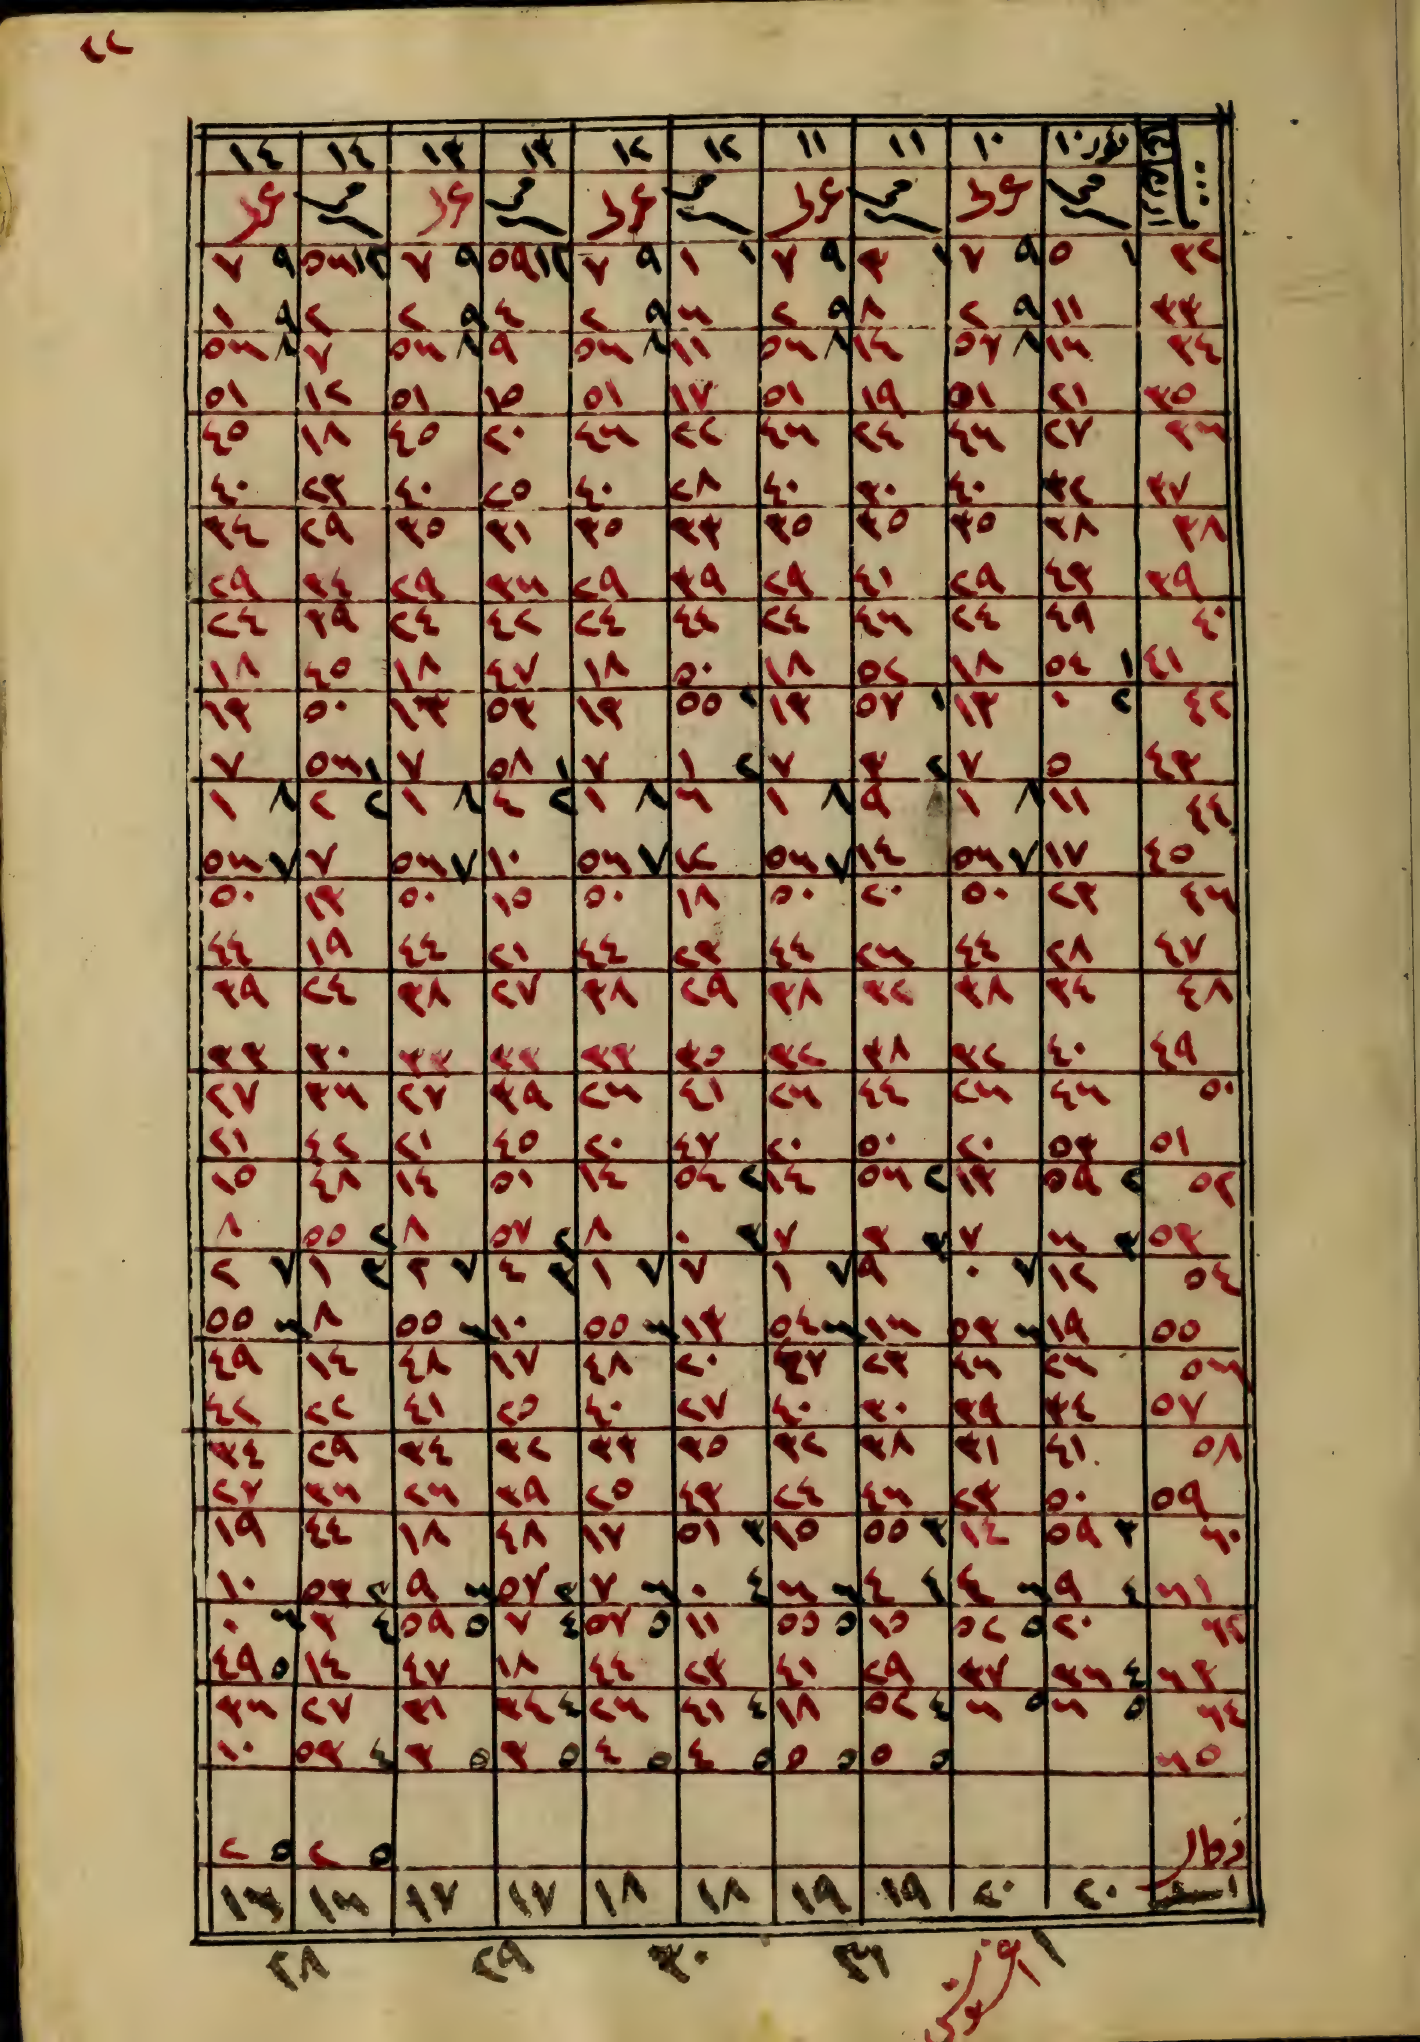 ٢٢
١٠ ١٠ ١١ ١١ ١٢ ١٢ ١٣ ١٣ ١٤ ١٤
٣٢ ١ ٥ ٩ ٧ ١ ٣ ٩ ٧ ١ ١ ٩ ٧ ١٢ ٥٩ ٩ ٧ ١٢ ٥٦ ٩ ٧
٣٣ ١١ ٩ ٢ ٨ ٩ ٢ ٦ ٩ ٢ ٤ ٩ ٢ ٢ ٩ ١
٣٤ ١٦ ٨ ٥٧ ١٤ ٨ ٥٦ ١١ ٨ ٥٦ ٩ ٨ ٥٦ ٧ ٨ ٥٦
٣٥ ٢١ ٥١ ١٩ ٥١ ١٧ ٥١ ١٥ ٥١ ١٢ ٥١
٣٦ ٢٧ ٤٦ ٢٤ ٤٦ ٢٢ ٤٦ ٢٠ ٤٥ ١٨ ٤٥
٣٧ ٣٢ ٤٠ ٣٠ ٤٠ ٢٨ ٤٠ ٢٥ ٤٠ ٢٣ ٤٠
٣٨ ٣٨ ٣٥ ٣٥ ٣٥ ٣٣ ٣٥ ٣١ ٣٥ ٢٩ ٣٤
٣٩ ٤٣ ٢٩ ٤١ ٢٩ ٣٩ ٢٩ ٣٦ ٢٩ ٣٤ ٢٩
٤٠ ٤٩ ٢٤ ٤٦ ٢٤ ٤٤ ٢٤ ٤٢ ٢٤ ٣٩ ٢٤
٤١ ١ ٥٤ ١٨ ٥٢ ١٨ ٥٠ ١٨ ٤٧ ١٨ ٤٥ ١٨
٤٢ ٢ ٠ ١٣ ١ ٥٧ ١٣ ١ ٥٥ ١٣ ٥٣ ١٣ ٥٠ ١٣
٤٣ ٥ ٧ ٢ ٣ ٧ ٢ ١ ٧ ١ ٥٨ ٧ ١ ٥٦ ٧
٤٤ ١١ ٨ ١ ٩ ٨ ١ ٦ ٨ ١ ٢ ٤ ٨ ١ ٢ ٢ ٨ ١
٤٥ ١٧ ٧ ٥٦ ١٤ ٧ ٥٦ ١٢ ٧ ٥٦ ١٠ ٧ ٥٦ ٧ ٧ ٥٦
٤٦ ٢٣ ٥٠ ٢٠ ٥٠ ١٨ ٥٠ ١٥ ٥٠ ١٣ ٥٠
٤٧ ٢٨ ٤٤ ٢٦ ٤٤ ٢٣ ٤٤ ٢١ ٤٤ ١٩ ٤٤
٤٨ ٣٤ ٣٨ ٣٢ ٣٨ ٢٩ ٣٨ ٢٧ ٣٨ ٢٤ ٣٩
٤٩ ٤٠ ٣٢ ٣٨ ٣٢ ٣٥ ٣٣ ٣٣ ٣٣ ٣٠ ٣٣
٥٠ ٤٦ ٢٦ ٤٤ ٢٦ ٤١ ٢٦ ٣٩ ٢٧ ٣٦ ٢٧
٥١ ٥٣ ٢٠ ٥٠ ٢٠ ٤٧ ٢٠ ٤٥ ٢١ ٤٢ ٢١
٥٢ ٢ ٥٩ ١٣ ٢ ٥٦ ١٤ ٢ ٥٤ ١٤ ٥١ ١٤ ٤٨ ١٥
٥٣ ٣ ٦ ٧ ٣ ٣ ٧ ٣ ٠ ٨ ٢ ٥٧ ٨ ٢ ٥٥ ٨
٥٤ ١٢ ٧ ٠ ٩ ٧ ١ ٧ ٧ ١ ٣ ٤ ٧ ٢ ٣ ١ ٧ ٢
٥٥ ١٩ ٦ ٥٣ ١٦ ٦ ٥٤ ١٣ ٦ ٥٥ ١٠ ٦ ٥٥ ٨ ٦ ٥٥
٥٦ ٢٦ ٤٦ ٢٣ ٤٧ ٢٠ ٤٨ ١٧ ٤٨ ١٤ ٤٩
٥٧ ٣٤ ٣٩ ٣٠ ٤٠ ٢٧ ٤٠ ٢٥ ٤١ ٢٢ ٤٢
٥٨ ٤١ ٣١ ٣٨ ٣٢ ٣٥ ٣٣ ٣٢ ٣٤ ٢٩ ٣٤
٥٩ ٥٠ ٢٣ ٤٦ ٢٤ ٤٣ ٢٥ ٣٩ ٢٦ ٣٦ ٢٧
٦٠ ٣ ٥٩ ١٤ ٣ ٥٥ ١٥ ٣ ٥١ ١٧ ٤٨ ١٨ ٤٤ ١٩
٦١ ٤ ٩ ٦ ٤ ٤ ٤ ٦ ٦ ٤ ٠ ٦ ٧ ٣ ٥٧ ٦ ٩ ٣ ٥٣ ١٠
٦٢ ٢٠ ٥ ٥٢ ١٥ ٥ ٥٥ ١١ ٥ ٥٧ ٤ ٧ ٥ ٥٩ ٤ ٣ ٦ ٠
٦٣ ٤ ٣٦ ٣٧ ٢٩ ٤١ ٢٣ ٤٤ ١٨ ٤٧ ١٤ ٥ ٤٩
٦٤ ٥ ٦ ٥ ٦ ٤ ٥٢ ١٨ ٤ ٤١ ٢٦ ٤ ٣٤ ٣١ ٢٧ ٣٦
٦٥ ٥ ٥ ٥ ٥ ٥ ٤ ٥ ٤ ٥ ٣ ٥ ٣ ٤ ٥٣ ١٠
٥ ٢ ٥ ٢
اسد ٢٠ ٢٠ ١٩ ١٩ ١٨ ١٨ ١٧ ١٧ ١٦ ١٦
١ ٣١ ٣٠ ٢٩ ٢٨